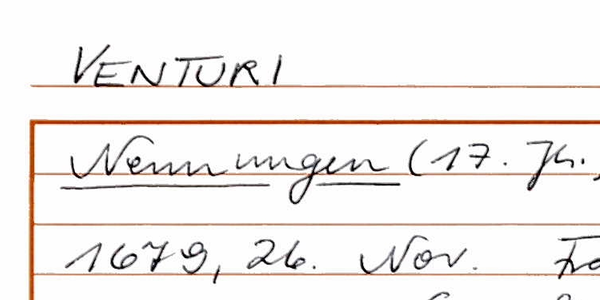 VENTURI
Nennungen (17. Jh.,
1679, 26. Nov.